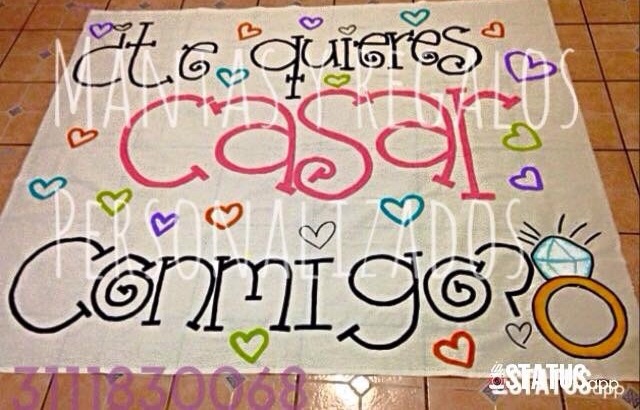 ¿te quieres
MANTAS Y REGALOS
Casar
PERSONALIZADOS
Conmigo?
3111830068
STATUS app
STATUS app